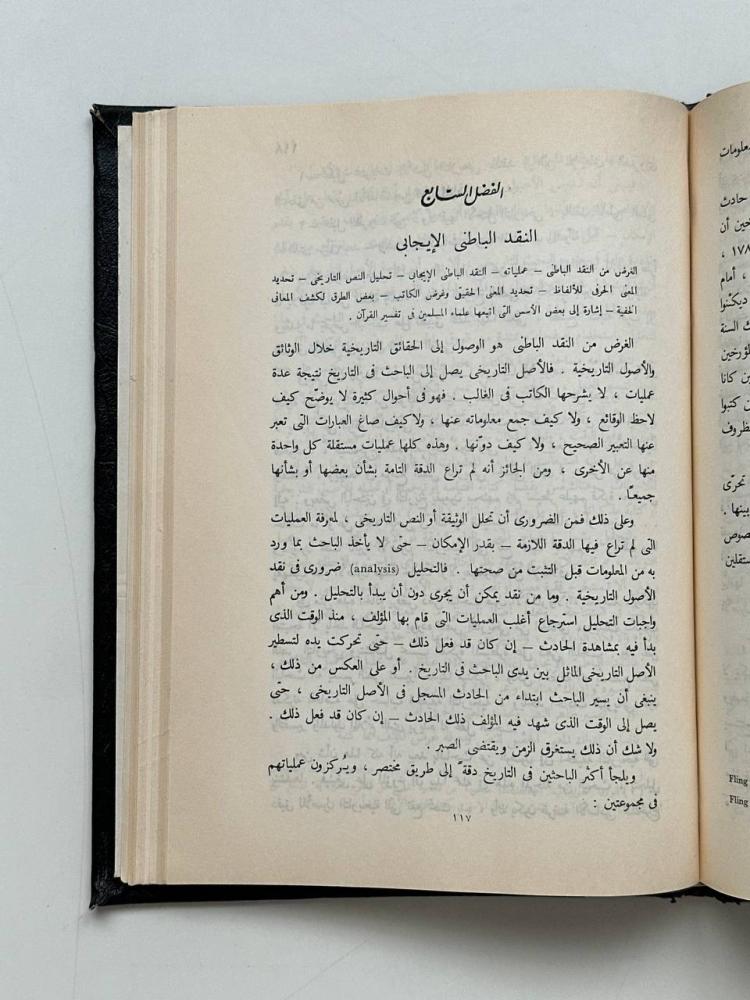 الفصل السابع
النقد الباطنى الإيجابى
الغرض من النقد الباطنى – عملياته – النقد الباطنى الإيجابى – تحليل النص التاريخى – تحديد
المعنى الحرفى للألفاظ – تحديد المعنى الحقيقى وغرض الكاتب – بعض الطرق لكشف المعانى
الخفية – إشارة إلى بعض الأسس التى اتبعها علماء المسلمين فى تفسير القرآن .
الغرض من النقد الباطنى هو الوصول إلى الحقائق التاريخية خلال الوثائق
والأصول التاريخية . فالأصل التاريخى يصل إلى الباحث فى التاريخ نتيجة عدة
عمليات ، لا يشرحها الكاتب فى الغالب . فهو فى أحوال كثيرة لا يوضّح كيف
لاحظ الوقائع ، ولا كيف جمع معلوماته عنها ، ولا كيف صاغ العبارات التى تعبر
عنها التعبير الصحيح ، ولا كيف دوّنها . وهذه كلها عمليات مستقلة كل واحدة
منها عن الأخرى ، ومن الجائز أنه لم تراع الدقة التامة بشأن بعضها أو بشأنها
جميعاً .
وعلى ذلك فمن الضرورى أن تحلل الوثيقة أو النص التاريخى ، لمعرفة العمليات
التى لم تراع فيها الدقة اللازمة – بقدر الإمكان – حتى لا يأخذ الباحث بما ورد
به من المعلومات قبل التثبت من صحتها . فالتحليل (analysis) ضرورى فى نقد
الأصول التاريخية . وما من نقد يمكن أن يجرى دون أن يبدأ بالتحليل . ومن أهم
واجبات التحليل استرجاع أغلب العمليات التى قام بها المؤلف ، منذ الوقت الذى
بدأ فيه بمشاهدة الحادث – إن كان قد فعل ذلك – حتى تحركت يده لتسطير
الأصل التاريخى الماثل بين يدى الباحث فى التاريخ . أو على العكس من ذلك ،
ينبغى أن يسير الباحث ابتداء من الحادث المسجل فى الأصل التاريخى ، حتى
يصل إلى الوقت الذى شهد فيه المؤلف ذلك الحادث – إن كان قد فعل ذلك .
ولا شك أن ذلك يستغرق الزمن ويقتضى الصبر .
ويلجأ أكثر الباحثين فى التاريخ دقةً إلى طريق مختصر ، ويُركزون عملياتهم
فى مجموعتين :
١١٧
حادث
، أمام
السنة
كتبوا
تحرّى
بينها .
Fling
Fling